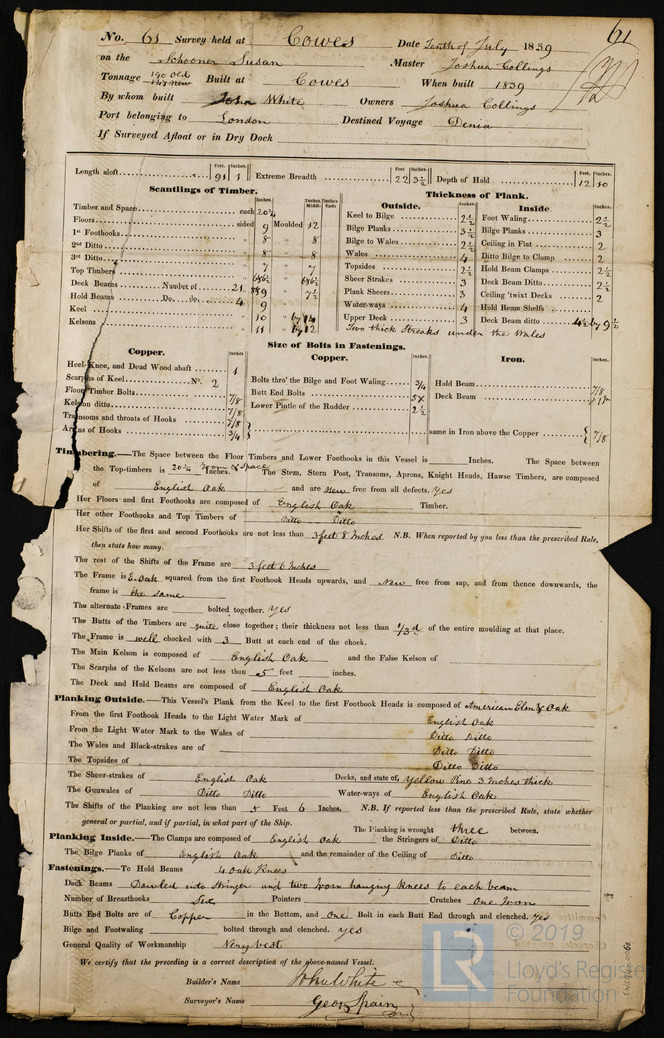 No. 61 Survey held at Cowes Date Tenth of July 1839
61
on the Schooner Susan Master Joshua Collings
Tonnage 190 Old Built at Cowes When built 1839
By whom built John White Owners Joshua Collings
Port belonging to London Destined Voyage Denia
If Surveyed Afloat or in Dry Dock
Length aloft 91 1 Extreme Breadth 22 3½ Depth of Hold 12 10
Feet. Inches.
Scantlings of Timber.
Timber and Space each 20¼
Floors sided 9 Moulded 12
1st Foothooks 8 8
2nd Ditto 8 8
3rd Ditto 8 8
Top Timbers 7 7
Deck Beams Number of 21
Hold Beams Do. do. 4 9 7½
Keel 9
Kelsons 10 by
11 by 12
Thickness of Plank.
Outside.
Keel to Bilge 2½
Bilge Planks 3½
Bilge to Wales 2½
Wales 4
Topsides 2½
Sheer Strakes 3
Plank Sheers 3
Water-ways 4
Upper Deck 3
Two thick Streaks under the Wales
Inside.
Foot Waling 2½
Bilge Planks 3
Ceiling in Flat 2
Ditto Bilge to Clamp 2
Hold Beam Clamps 2½
Deck Beam Ditto 2½
Ceiling 'twixt Decks 2
Hold Beam Shelfs
Deck Beam ditto 4½ by 9½
Size of Bolts in Fastenings.
Copper.
Heel-Knee, and Dead Wood abaft 1
Scarphs of Keel No. 2
Floor Timber Bolts 7/8
Kelson ditto 7/8
Transoms and throats of Hooks 7/8
Arms of Hooks 3/4
Copper.
Bolts thro' the Bilge and Foot Waling 3/4
Butt End Bolts
Lower Pintle of the Rudder 2½
Iron.
Hold Beam 7/8
Deck Beam
same in Iron above the Copper 7/8
Timbering.—The Space between the Floor Timbers and Lower Foothooks in this Vessel is Inches. The Space between
the Top-timbers is 20¼ Room & Space Inches. The Stem, Stern Post, Transoms, Aprons, Knight Heads, Hawse Timbers, are composed
of English Oak and are new free from all defects. Yes
Her Floors and first Foothooks are composed of English Oak Timber.
Her other Foothooks and Top Timbers of Ditto Ditto
Her Shifts of the first and second Foothooks are not less than 3 feet 8 Inches N.B. When reported by you less than the prescribed Rule,
then state how many.
The rest of the Shifts of the Frame are 3 feet 6 Inches
The Frame is E. Oak squared from the first Foothook Heads upwards, and New free from sap, and from thence downwards, the
frame is the same
The alternate Frames are bolted together. Yes
The Butts of the Timbers are quite close together; their thickness not less than 1/3d of the entire moulding at that place.
The Frame is well chocked with 3 Butt at each end of the chock.
The Main Kelson is composed of English Oak and the False Kelson of
The Scarphs of the Kelsons are not less than 5 feet inches.
The Deck and Hold Beams are composed of English Oak
Planking Outside.—This Vessel's Plank from the Keel to the first Foothook Heads is composed of American Elm & Oak
From the first Foothook Heads to the Light Water Mark of English Oak
From the Light Water Mark to the Wales of Ditto Ditto
The Wales and Black-strakes are of Ditto Ditto
The Topsides of Ditto Ditto
The Sheer-strakes of English Oak Decks, and state of, Yellow Pine 3 Inches thick
The Gunwales of Ditto Ditto Water-ways of English Oak
The Shifts of the Planking are not less than 5 Feet 6 Inches. N.B. If reported less than the prescribed Rule, state whether
general or partial, and if partial, in what part of the Ship.
The Planking is wrought three between.
Planking Inside.—The Clamps are composed of English Oak the Stringers of Ditto
The Bilge Planks of English Oak and the remainder of the Ceiling of Ditto
Fastenings.—To Hold Beams 4 Oak Knees
Deck Beams Doweled into Stringer and two Iron hanging Knees to each beam
Number of Breasthooks Six Pointers Crutches One Iron
Butts End Bolts are of Copper in the Bottom, and One Bolt in each Butt End through and clenched. Yes
Bilge and Footwaling bolted through and clenched. Yes
General Quality of Workmanship Very best
We certify that the preceding is a correct description of the above-named Vessel.
Builder's Name John White
Surveyor's Name Geo Spain
© 2019
LR Lloyd's Register
Foundation